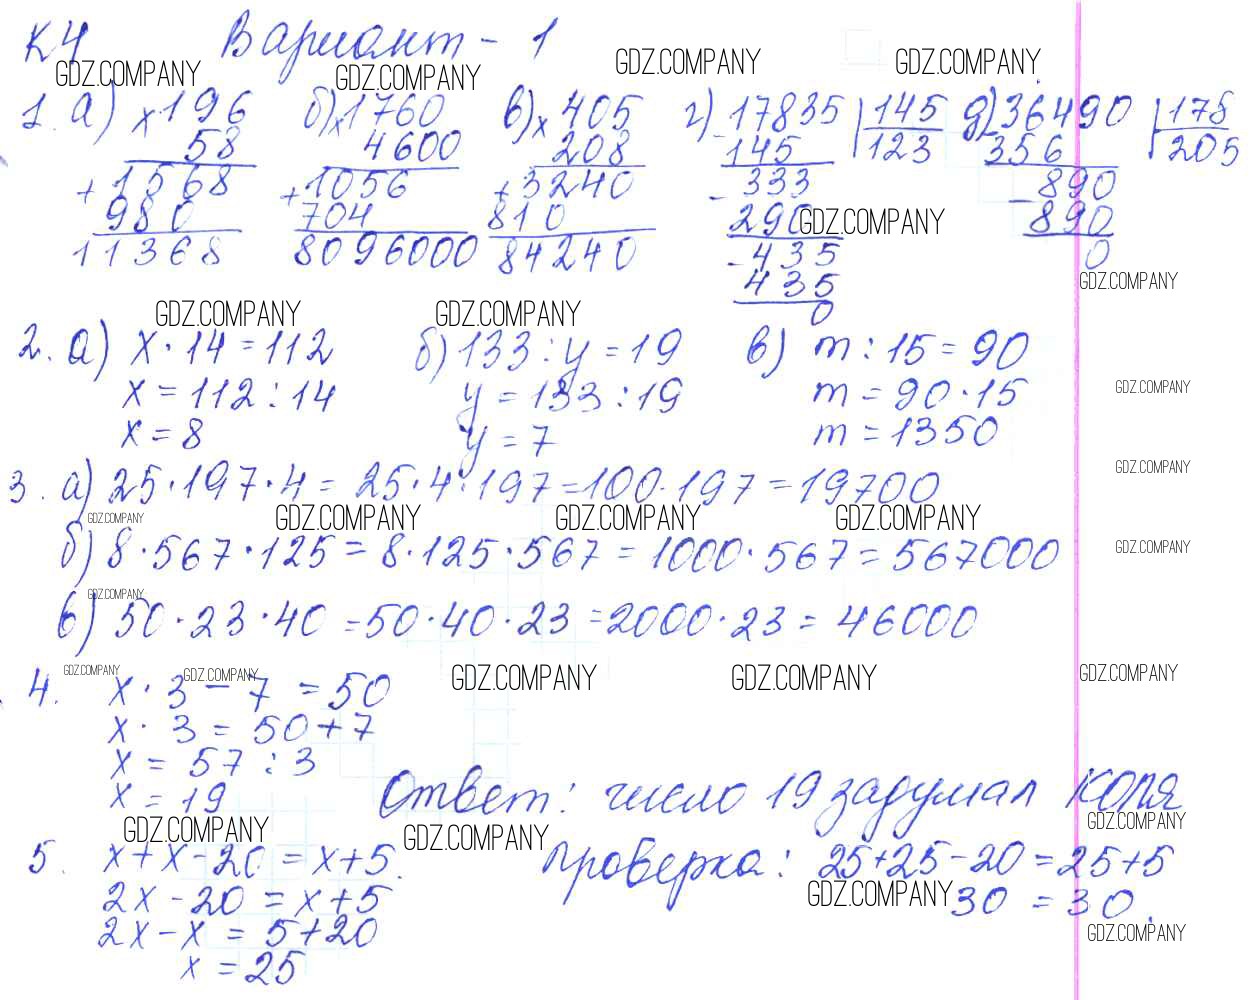 К4 Вариант - 1
GDZ.COMPANY GDZ.COMPANY GDZ.COMPANY GDZ.COMPANY
1. а) x 196 б) x 1760 в) x 405 г) 17835 | 145 д) 36490 | 178
58 4600 208 - 145 123 - 356 205
+ 1568 + 1056 + 3240 - 333 - 890
980 704 810 290 GDZ.COMPANY 890
11368 8096000 84240 - 435 0
435 GDZ.COMPANY
0
GDZ.COMPANY GDZ.COMPANY
2. а) x · 14 = 112 б) 133 : y = 19 в) m : 15 = 90
x = 112 : 14 y = 133 : 19 m = 90 · 15 GDZ.COMPANY
x = 8 y = 7 m = 1350
GDZ.COMPANY
3. а) 25 · 197 · 4 = 25 · 4 · 197 = 100 · 197 = 19700
GDZ.COMPANY GDZ.COMPANY GDZ.COMPANY GDZ.COMPANY
б) 8 · 567 · 125 = 8 · 125 · 567 = 1000 · 567 = 567000 GDZ.COMPANY
GDZ.COMPANY
в) 50 · 23 · 40 = 50 · 40 · 23 = 2000 · 23 = 46000
GDZ.COMPANY GDZ.COMPANY GDZ.COMPANY GDZ.COMPANY GDZ.COMPANY
4. x · 3 - 7 = 50
x · 3 = 50 + 7
x = 57 : 3
x = 19 Ответ: число 19 задумал Коля
GDZ.COMPANY GDZ.COMPANY GDZ.COMPANY
5. x + x - 20 = x + 5. Проверка: 25 + 25 - 20 = 25 + 5
2x - 20 = x + 5 GDZ.COMPANY 30 = 30.
2x - x = 5 + 20 GDZ.COMPANY
x = 25